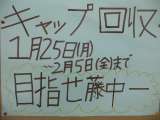 キャップ回収
1月25日(月)
〜2月5日(金)まで
目指せ藤中一